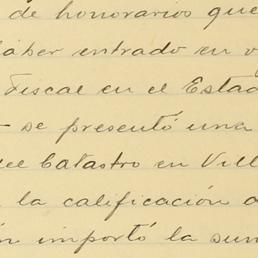 de honorarios que
haber entrado en v
Fiscal en el Estad
se presentó una
del Catastro en Vill
la calificación d
importó la sum